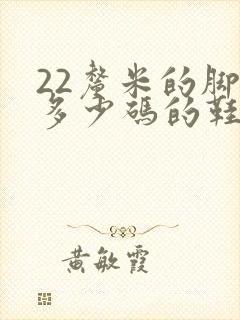 22釐米的脚
多少碼的鞋
黄敏霞